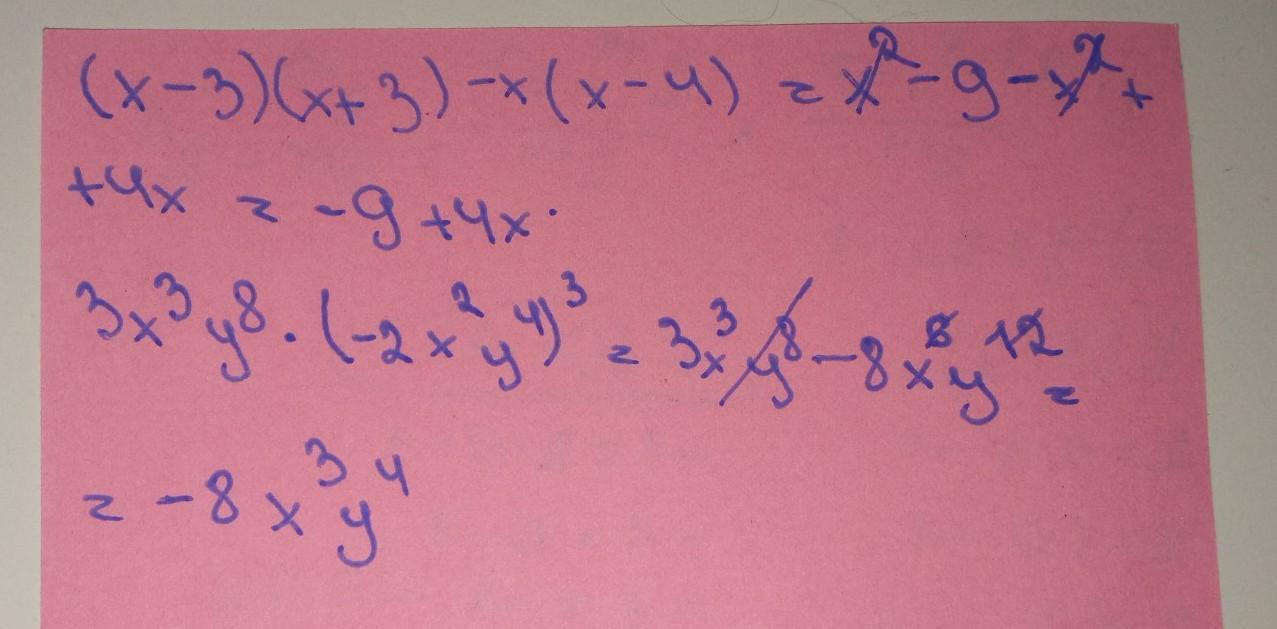 (x-3)(x+3)-x(x-4) = x²-9-x²+
+4x = -9+4x.
3x³y⁸·(-2x²y⁴)³ = 3x³y⁸-8x⁶y¹² =
= -8x³y⁴